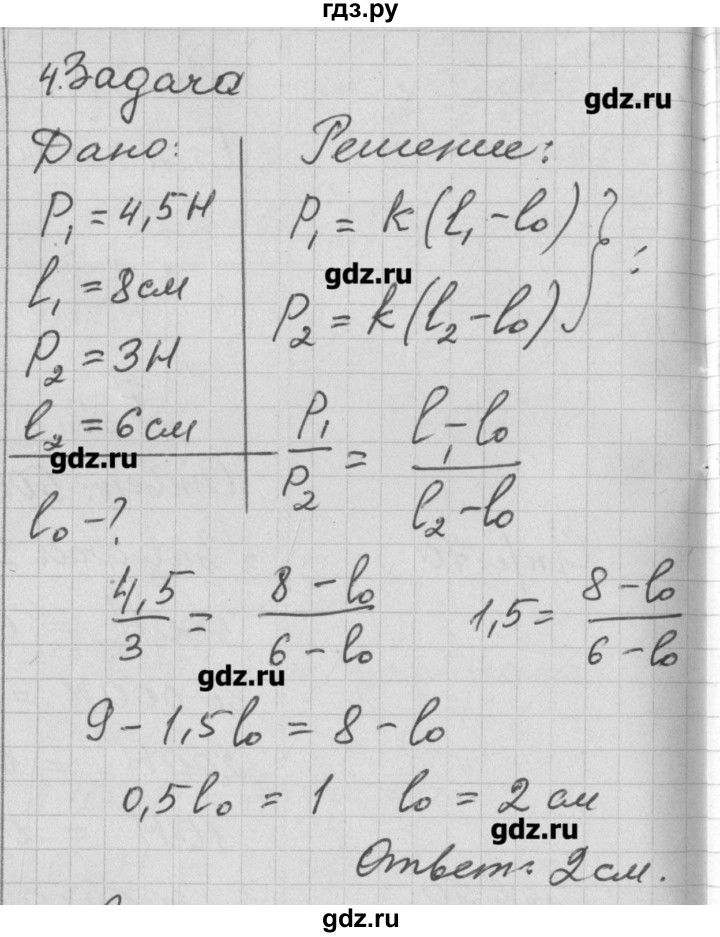 гдз.ру
4. Задача
gdz.ru
Дано:
P₁ = 4,5 Н
l₁ = 8 см
P₂ = 3 Н
l₂ = 6 см
gdz.ru
l₀ - ?
Решение:
P₁ = k(l₁ - l₀) } :
gdz.ru
P₂ = k(l₂ - l₀)
P₁/P₂ = (l₁ - l₀)/(l₂ - l₀)
4,5/3 = (8 - l₀)/(6 - l₀) 1,5 = (8 - l₀)/(6 - l₀)
gdz.ru
9 - 1,5l₀ = 8 - l₀
0,5l₀ = 1 l₀ = 2 см
gdz.ru
Ответ: 2 см.
gdz.ru